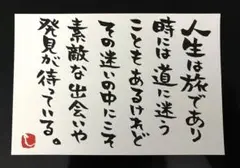 人生は旅であり
時には道に迷う
こともあるけれど
その迷いの中にこそ
素敵な出会いや
発見が待っている。